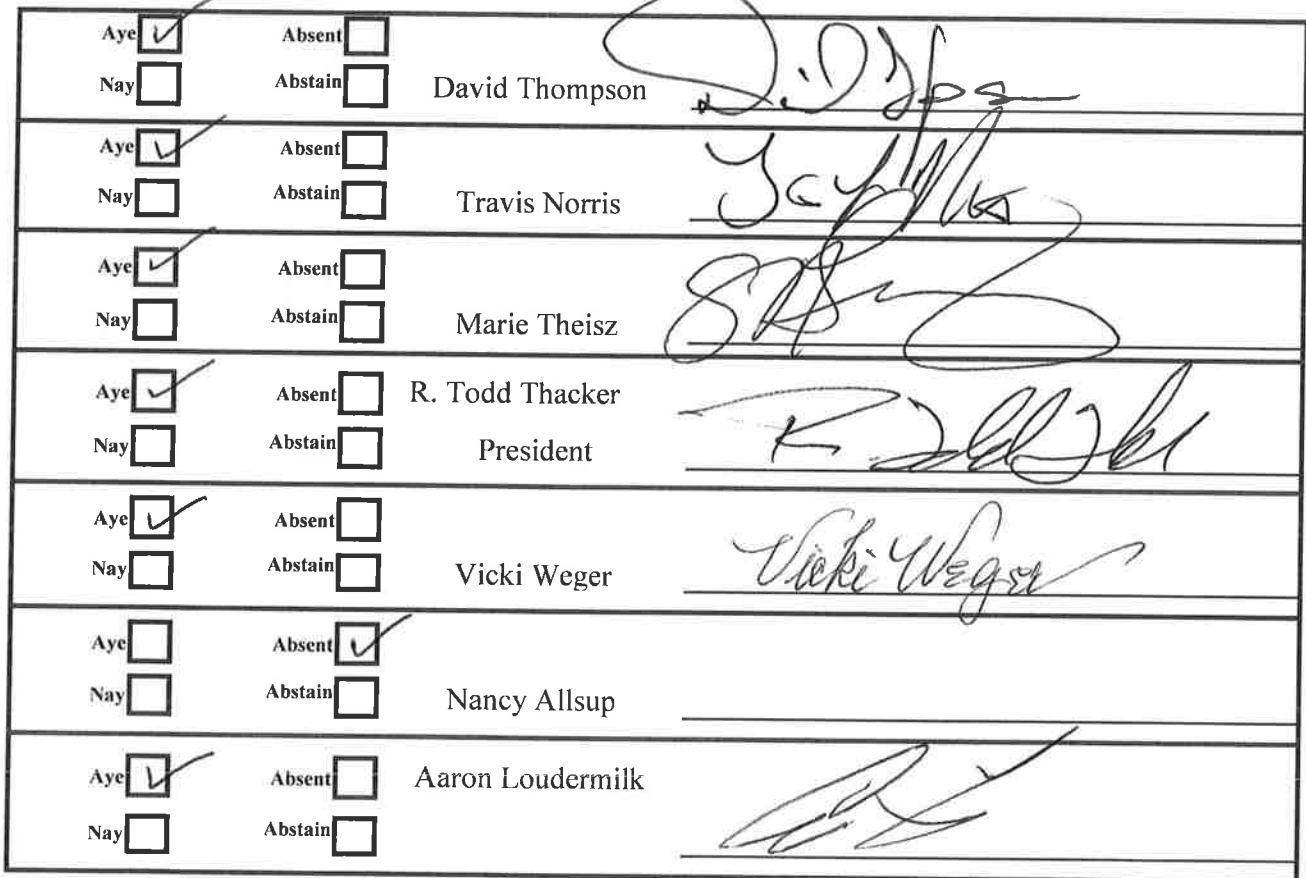 Aye Absent
Nay Abstain David Thompson
Aye Absent
Nay Abstain Travis Norris
Aye Absent
Nay Abstain Marie Theisz
Aye Absent R. Todd Thacker
Nay Abstain President
Aye Absent
Nay Abstain Vicki Weger Vicki Weger
Aye Absent
Nay Abstain Nancy Allsup
Aye Absent Aaron Loudermilk
Nay Abstain